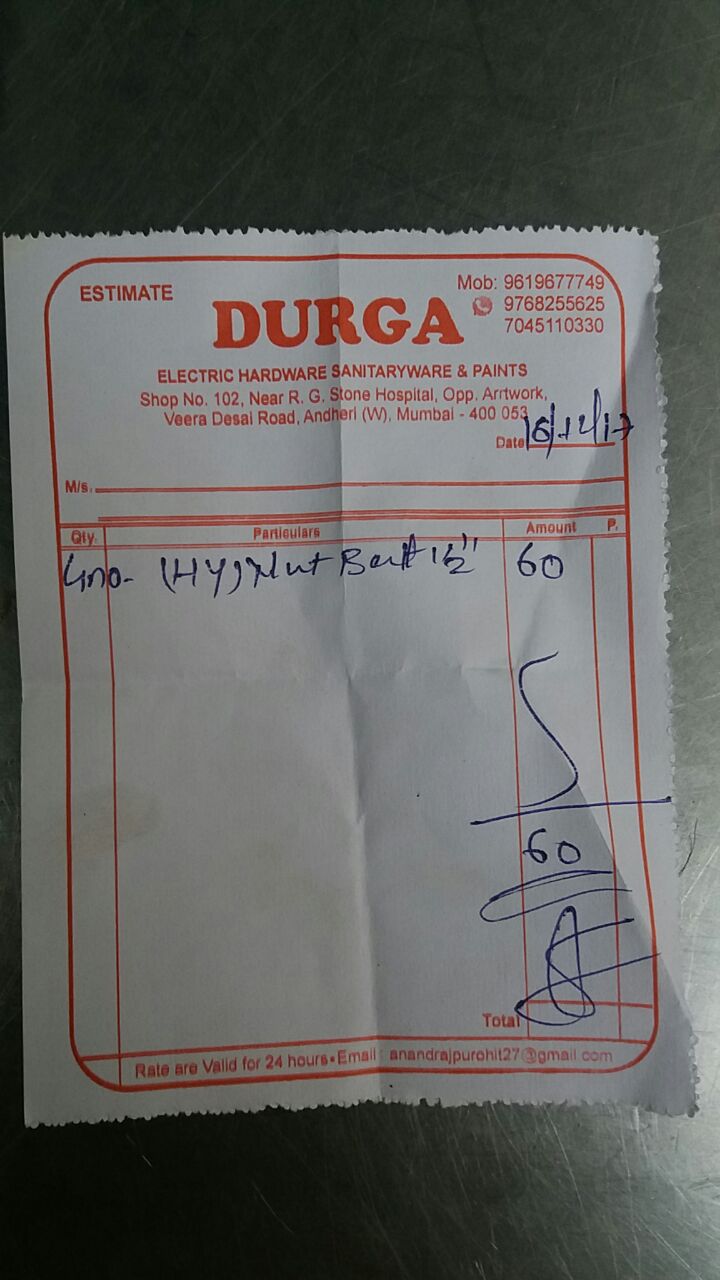 ESTIMATE
Mob: 9619677749
9768255625
7045110330
DURGA
ELECTRIC HARDWARE SANITARYWARE & PAINTS
Shop No. 102, Near R. G. Stone Hospital, Opp. Arrtwork,
Veera Desai Road, Andheri (W), Mumbai - 400 053
Date 16/12/17
M/s.
Qty. Particulars Amount P.
4no. (HY) Nut Bolt 1½" 60
60
Total
Rate are Valid for 24 hours • Email : anandrajpurohit27@gmail.com